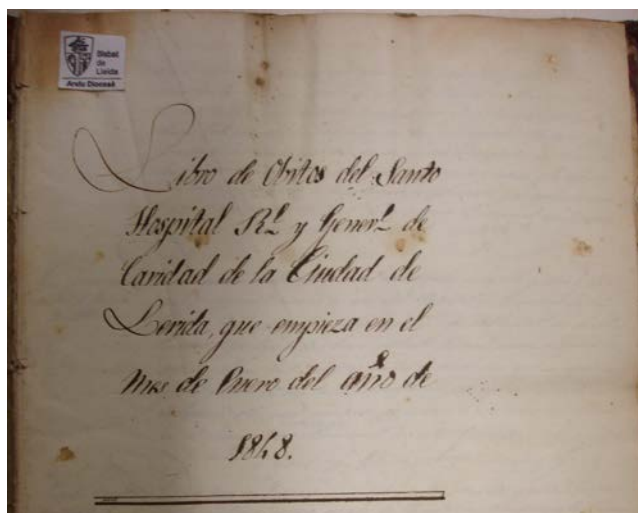 Bisbat
de
Lleida
Arxiu Diocesà
Libro de Obitos del Santo
Hospital Rl. y Generl. de
Caridad de la Ciudad de
Lerida, que empieza en el
mes de Enero del año de
1848.